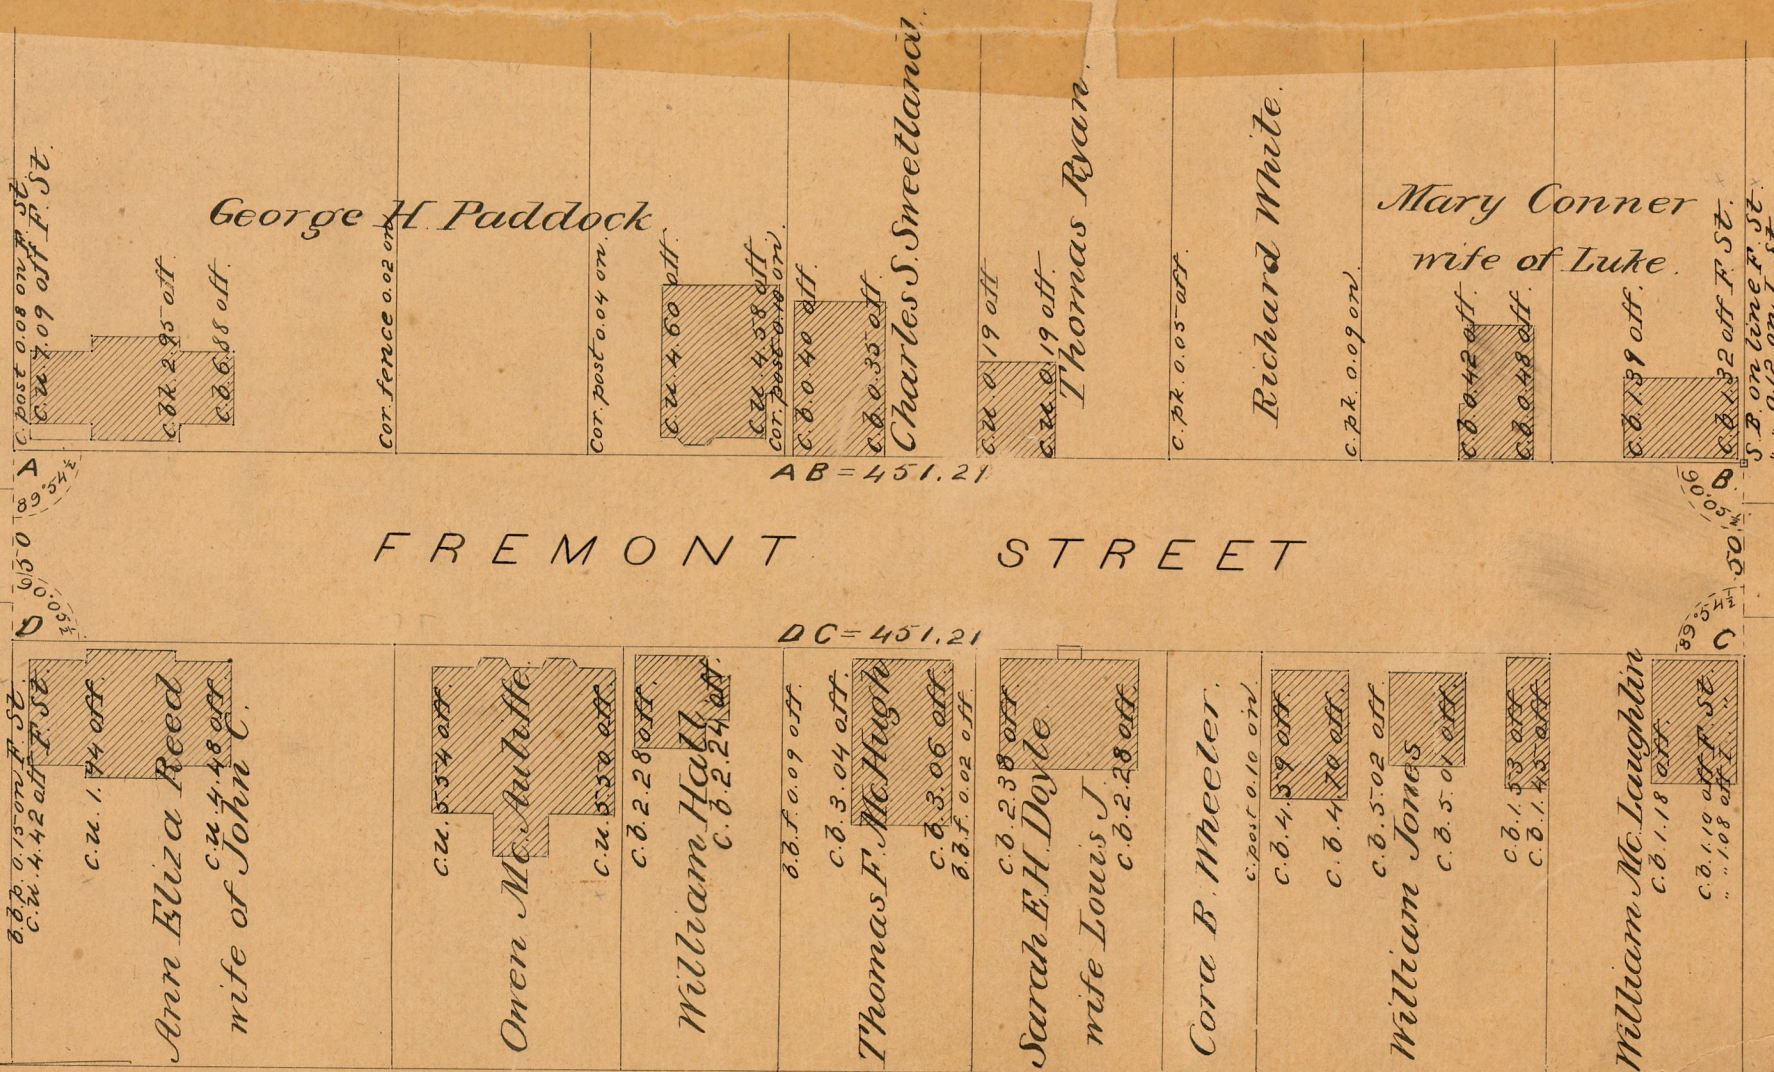 c. post 0.08 on F. St.
c.u. 7.09 off F. St.
c.bk. 2.95 off
c.b. 6.88 off.
George H. Paddock
cor. fence 0.02 on
cor. post 0.04 on.
c.u. 4.60 off.
c.u. 4.58 off
cor. post 0.10 on.
c.b. 0.40 off.
c.b. 0.35 off
Charles S. Sweetland.
c.u. 0.19 off
c.u. 0.19 off.
Thomas Ryan.
c.pk. 0.05 off.
Richard White.
c.pk. 0.09 on.
Mary Conner
wife of Luke.
c.b. 0.42 off.
c.b. 0.48 off.
c.b. 1.39 off.
c.b. 1.32 off F. St.
S.B. on line F. St.
A
89°54½
AB = 451.21
B
90°.05½
50
FREMONT STREET
50
90°.05½
D
DC = 451.21
89°54½
C
b.b.p. 0.15 on F. St.
c.u. 4.42 off F. St.
c.u. 1.94 off.
Ann Eliza Reed
c.u. 4.48 off.
wife of John C.
c.u. 5.54 off.
Owen McAuliffe.
c.u. 5.50 off.
c.b. 2.28 off.
William Hall
c.b. 2.24 off.
b.b.f. 0.09 off.
c.b. 3.04 off.
Thomas F. McHugh
c.b. 3.06 off.
b.b.f. 0.02 off
c.b. 2.38 off
Sarah E.H. Doyle
wife Louis J.
c.b. 2.28 off.
Cora B. Wheeler.
c. post 0.10 on.
c.b. 4.59 off
c.b. 4.70 off.
c.b. 5.02 off
William Jones
c.b. 5.01 off.
c.b. 1.53 off
c.b. 1.45 off.
William McLaughlin
c.b. 1.18 off.
c.b. 1.10 off F. St.
" " 1.08 off I. "